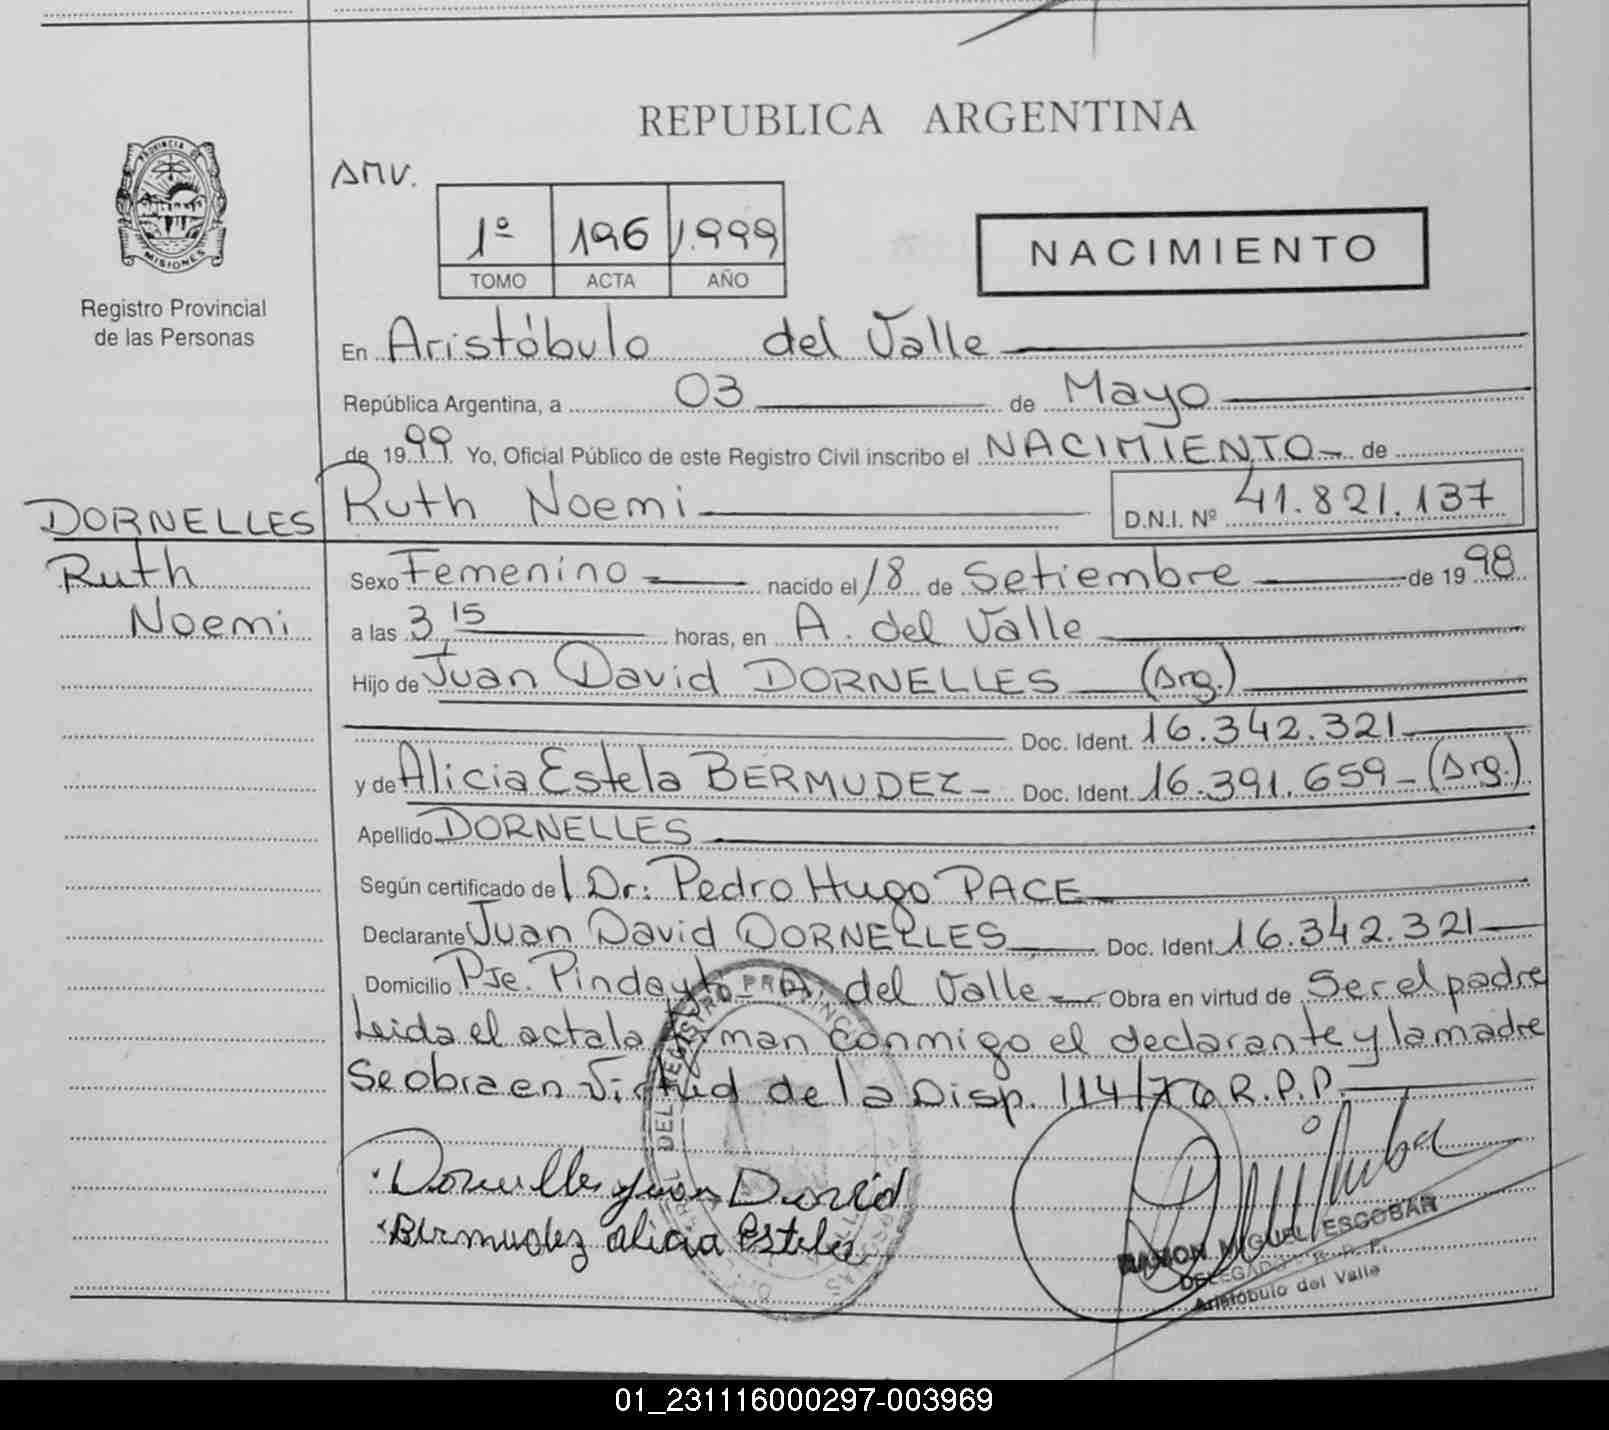 REPUBLICA ARGENTINA
AMV.
1º 196 1.999
TOMO ACTA AÑO
NACIMIENTO
PROVINCIA DE
MISIONES
Registro Provincial
de las Personas
En Aristóbulo del Valle
República Argentina, a 03 de Mayo
de 1999 Yo, Oficial Público de este Registro Civil inscribo el NACIMIENTO de
DORNELLES Ruth Noemi D.N.I. Nº 41.821.137
Ruth
Noemi
Sexo Femenino nacido el 18 de Setiembre de 1998
a las 3,15 horas, en A. del Valle
Hijo de Juan David DORNELLES (Arg.)
Doc. Ident. 16.342.321
y de Alicia Estela BERMUDEZ Doc. Ident. 16.391.659 - (Arg.)
Apellido DORNELLES
Según certificado del Dr: Pedro Hugo PACE
Declarante Juan David DORNELLES Doc. Ident. 16.342.321
Domicilio Pje. Pindayty A. del Valle Obra en virtud de Ser el padre
Leida el acta la firman conmigo el declarante y la madre
Se obra en Virtud de la Disp. 114/76 R.P.P.
Dornelles Juan David
Bermudez Alicia Estela
DEL REGISTRO PROVINCIAL
RAMON MIGUEL ESCOBAR
DELEGADO R. P. P.
Aristóbulo del Valle
01_231116000297-003969